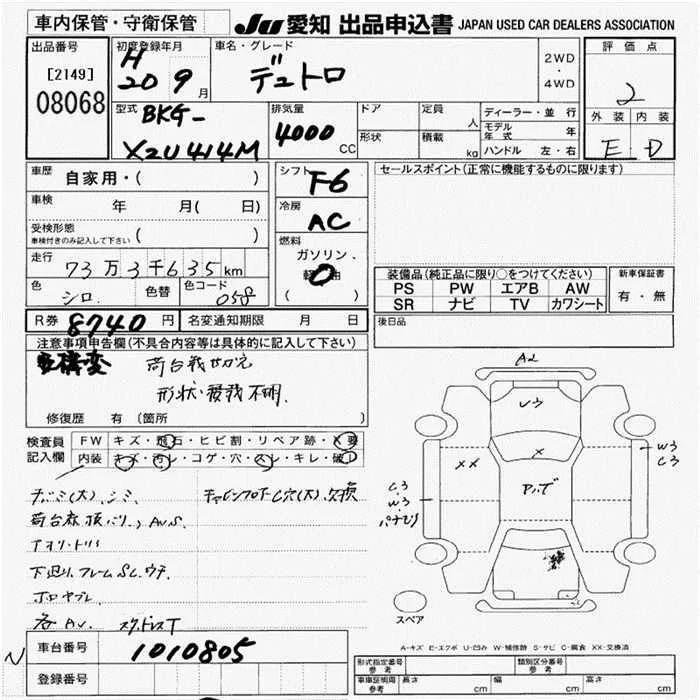 車内保管・守衛保管
JU 愛知 出品申込書 JAPAN USED CAR DEALERS ASSOCIATION
出品番号
[2149]
08068
初度登録年月
H
20 9月
車名・グレード
デュトロ
2WD
・
4WD
評価点
2
外装 内装
E D
型式
BKG-
XZU414M
排気量
4000
CC
ドア
定員
人
形状
積載
kg
ディーラー・並行
モデル年式 年
ハンドル 左・右
車歴 自家用・( )
車検 年 月( 日)
受検形態
車検付きのみ記入して下さい ( )
走行 73万3千635km
色 シロ 色替 色コード 058
シフト F6
冷房 AC
燃料
ガソリン、
軽油
( )
セールスポイント(正常に機能するものに限ります)
装備品(純正品に限り○をつけてください)
PS PW エアB AW
SR ナビ TV カワシート
新車保証書
有・無
R券 8740円 名変通知期限 月 日
後日品
注意事項申告欄(不具合内容等は具体的に記入して下さい)
構変 荷台載せかえ
形状・積載不明
修復歴 有 〔箇所 〕
検査員
記入欄
FW キズ・飛石・ヒビ割・リペア跡・X要
内装 キズ・汚レ・コゲ・穴・スレ・キレ・破レ
A2
U3
X
XX
W3
C3
C3
W3
スペア
A-キズ E-エクボ U-凹み W-補修跡 S-サビ C-腐食 XX-交換済
下廻り、フレームSC、ウチ
N
車台番号 1010805
登録番号
形式指定番号
参考
類別区分番号
参考
車庫証明用
参考
長さ cm 幅 cm 高さ cm